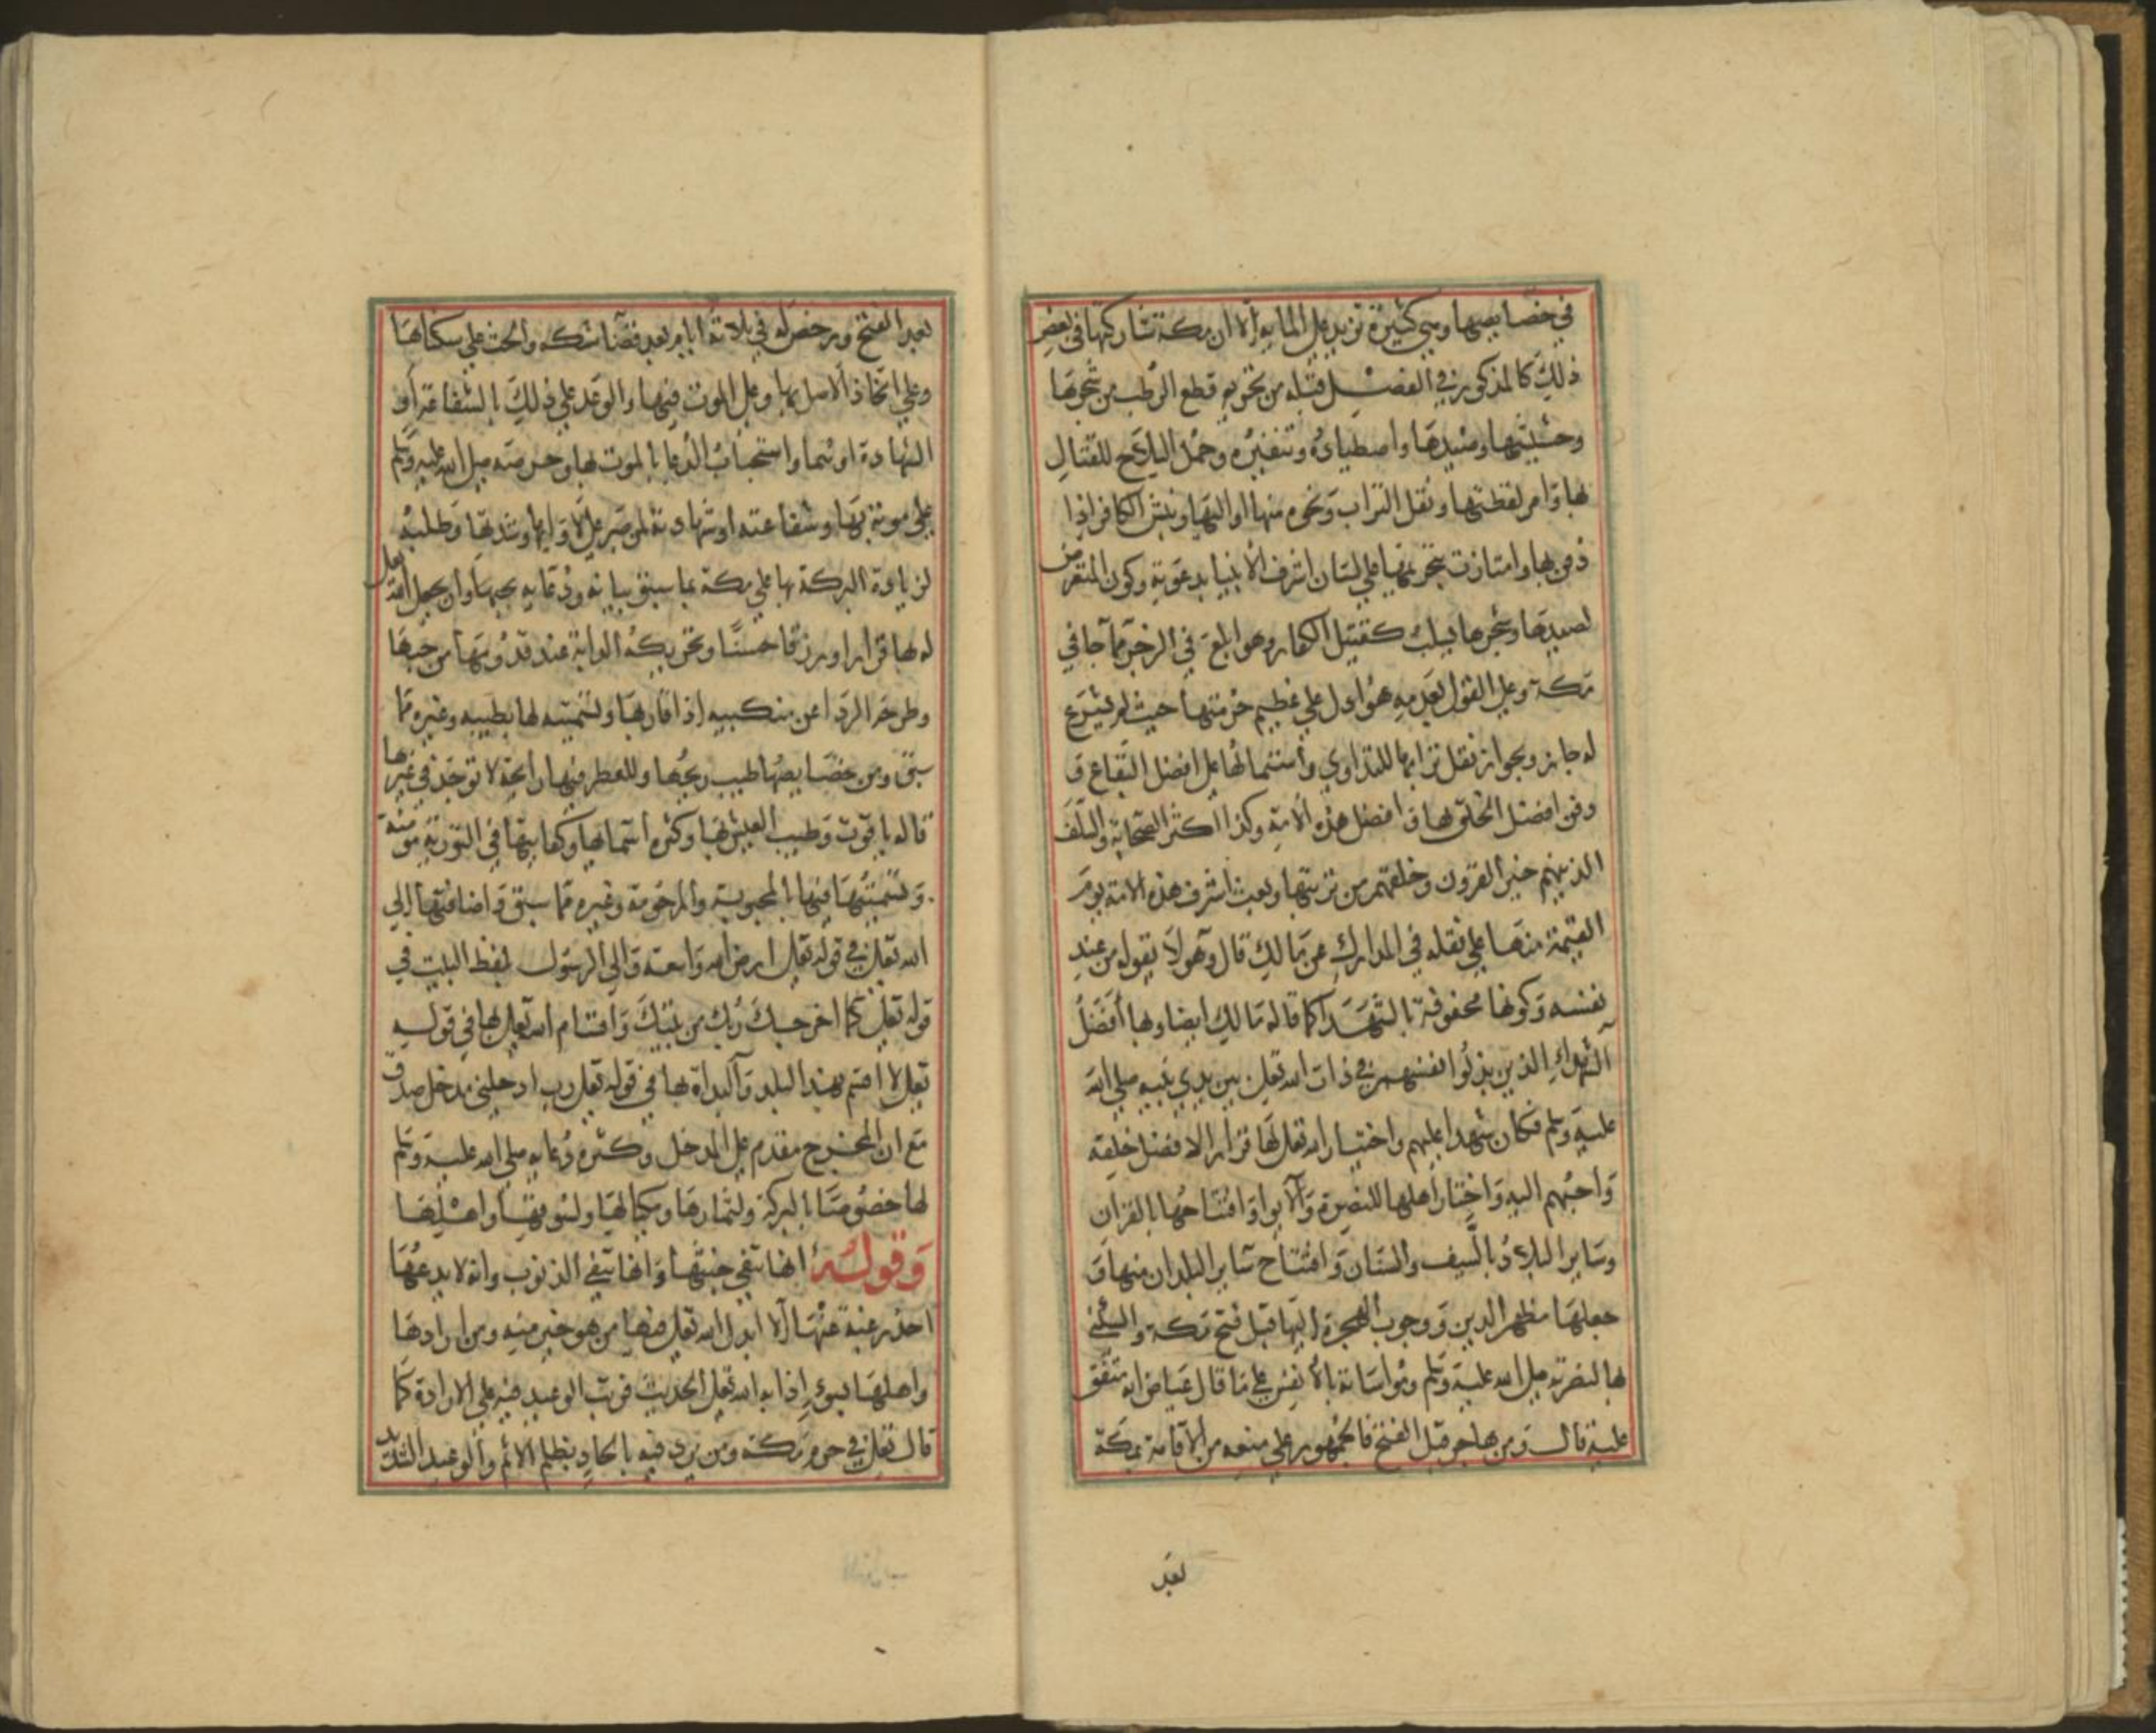 في خصايصها وهي كثيرة تزيد على الماية الا ان مكة تشاركها في بعض
ذلك كالمذكور في الفصل قبله من تحريم قطع الرطب من شجرها
وحشيشها وصيدها واصطياده وتنفيره وحمل السلاح للقتال
بها وامر لقطتها ونقل التراب ونحوه منها او اليها ونبش الكافر اذا
دفن بها وامتازت بتحريمها على لسان اشرف الانبيا بدعوته وكون المتعرض
لصيدها وشجرها يسلب كقتيل الكفار وهو ابلغ في الزجر مما جا في
مكة وعلى القول بعدمه هو ادل على عظيم حرمتها حيث لم يشرع
له جابر ويجواز نقل ترابها للتداوي واشتمالها على افضل البقاع و
دفن افضل الخلق بها وافضل هذه الامة وكذا اكثر الصحابة والسلف
الذين هم خير القرون وخلقهم من تربتها وبعث اشرف هذه الامة يوم
القيمة منها على نقله في المدارك عن مالك قال وهو لا يقوله من عند
نفسه وكونها محفوفة بالشهدا كما قاله مالك ايضا وبها افضل
الشهداء الذين بذلوا انفسهم في ذات الله تعلى بين يدي نبيه صلى الله
عليه وسلم فكان شهدا عليهم واختيار الله تعلى لها قرارا لافضل خلقه
واحبهم اليه واختار اهلها للنصرة والايوا وافتتاحها بالقران
وساير البلاد بالسيف والسنان وافتتاح ساير البلدان منها و
جعلها مظهر الدين ووجوب الهجرة اليها قبل فتح مكة والسكنى
بها لنصرته صلى الله عليه وسلم ومواساته بالانفس على ما قال عياض انه متفق
عليه قال ومن هاجر قبل الفتح فالجمهور على منعه من الاقامة بمكة
بعد
بعد الفتح ورخص له في ثلاثة ايام بعد قضا نسكه والحث على سكناها
وعلى اتخاذ الاصل بها وعلى الموت فيها والوعد على ذلك بالشفاعة او
الشهادة او هما واستحباب الدعا بالموت بها وحرصه صلى الله عليه وسلم
على موته بها وشفاعته او شهادته لمن صبر على لاوايها وشدتها وطلبه
لزيادة البركة بها على مكة بما سبق بيانه ودعايه بحبها وان يجعل الله تعلى
له بها قرارا ورزقا حسنا وتحريكه الدابة عند قدومها من حبها
وطرحه الردا عن منكبيه اذا قاربها وتسميته لها بطيبه وغيره مما
سبق ومن خصايصها طيب ريحها وللعطر فيها رايحة لا توجد في غيرها
قاله ياقوت وطيب العيش بها وكثرة اسمائها وكتابتها في التورية مومنة
وتسميتها فيها بالمحبوبة والمرحومة وغيره مما سبق واضافتها الى
الله تعلى في قوله تعلى ارض الله واسعة والى الرسول بلفظ البيت في
قوله تعلى كما اخرجك ربك من بيتك واقسام الله تعلى بها في قوله
تعلى لا اقسم بهذا البلد والبداة بها في قوله تعلى رب ادخلني مدخل صدق
مع ان المخرج مقدم على المدخل وكثرة دعايه صلى الله عليه وسلم
لها خصوصا بالبركة ولثمارها ومكيالها ولسوقها واهلها
وقوله انها تنفي خبثها وانها تنفي الذنوب وانه لا يدعها
احد رغبة عنها الا ابدل الله تعلى فيها من هو خير منه ومن ارادها
واهلها بسوء اذابه الله تعلى الحديث فرتب الوعيد فيه على الارادة كما
قال تعلى في حرم مكة ومن يرد فيه بالحاد بظلم الاثم والوعيد الشديد